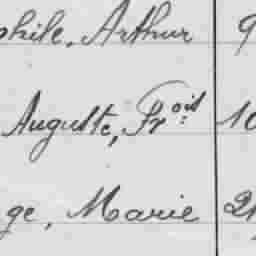 phile, Arthur 9
Auguste, Fr.ois 10
ge, Marie 21